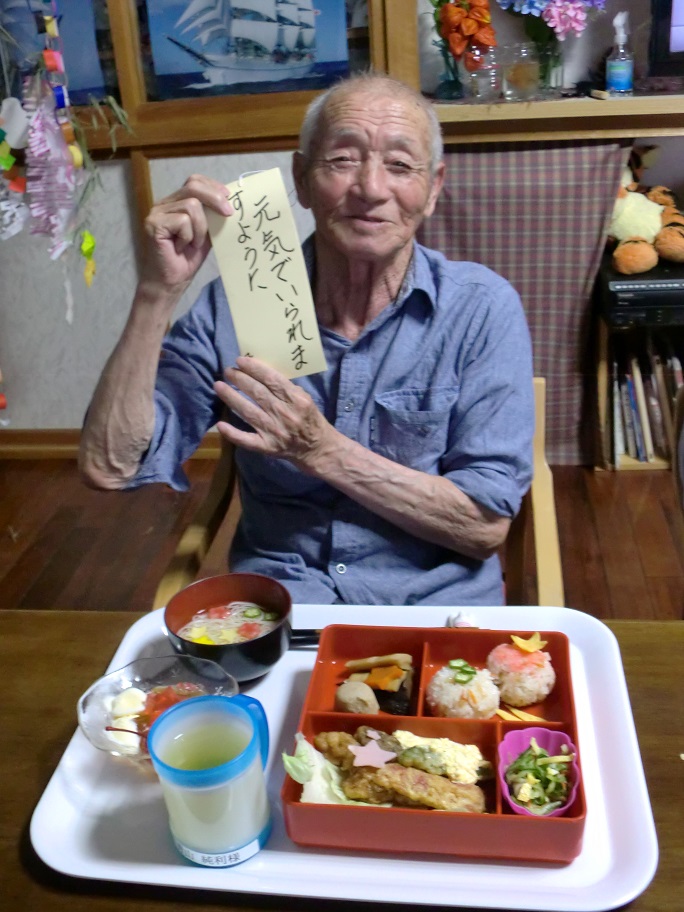 元気でいられま
すように
純利様